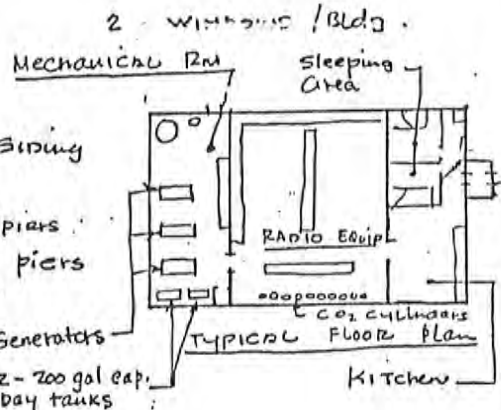 2 Windows / Bldg.
Mechanical RM
Sleeping
Area
Siding
piers
piers
RADIO Equip
Generators
CO2 Cylinders
TYPICAL FLOOR Plan
2 - 200 gal cap.
Day tanks
Kitchen